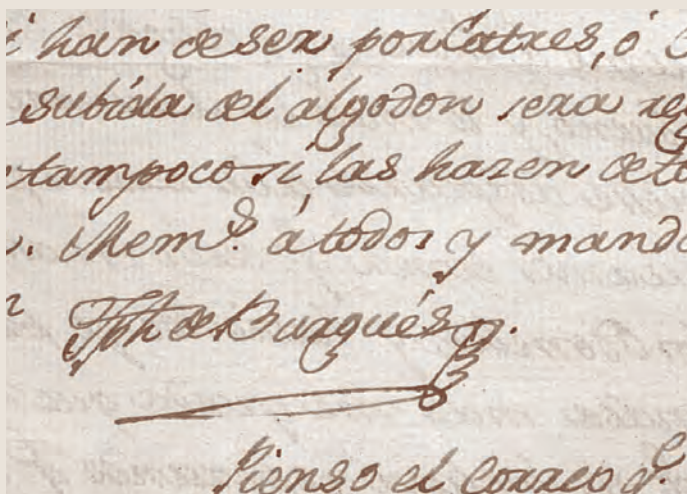 i han de ser por Catres, ó
subida del algodon sera re
tampoco si las hazen de to
Mem.s á todos y mand
Jph de Burgués
Pienso el Correo q.e